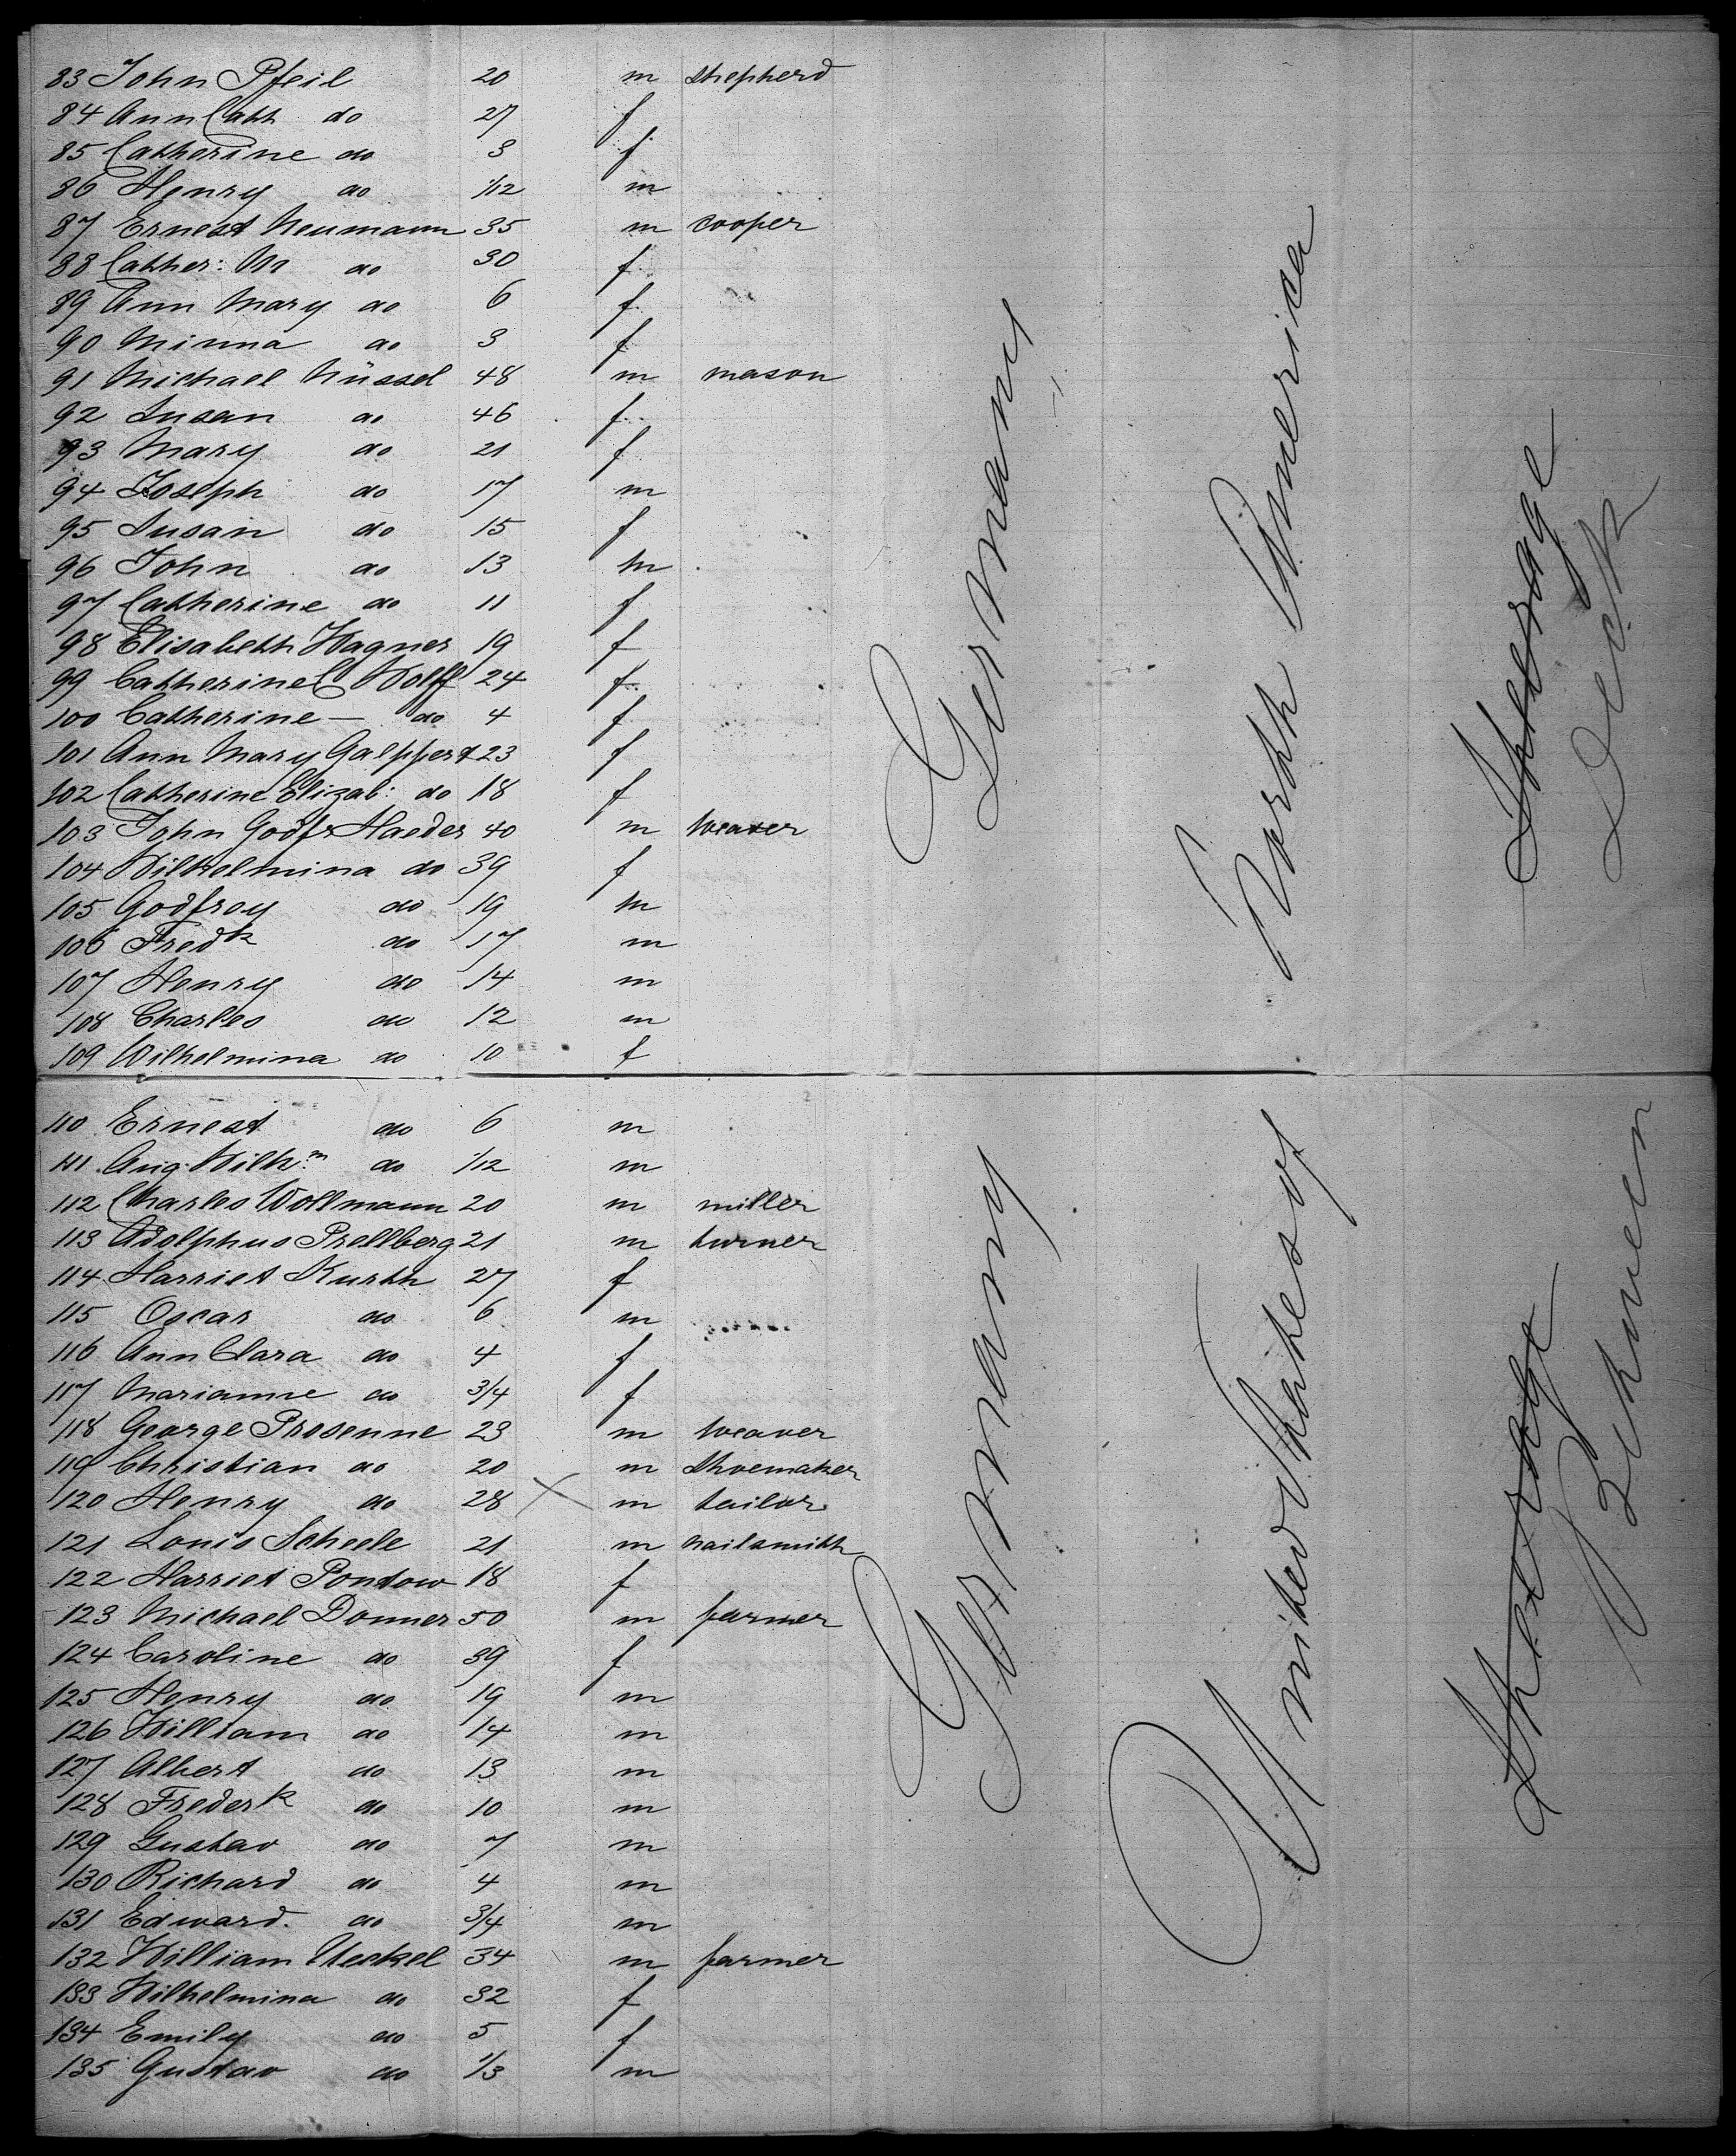 83 John Pfeil 20 m shepherd
84 Ann Cath do 27 f
85 Catherine do 3 f
86 Henry do 1/12 m
87 Ernest Neumann 35 m cooper
88 Cather: M do 30 f
89 Ann Mary do 6 f
90 Minna do 3 f
91 Michael Nüssel 48 m mason
92 Susan do 46 f
93 Mary do 21 f
94 Joseph do 17 m
95 Susan do 15 f
96 John do 13 m
97 Catherine do 11 f
98 Elisabeth Wagner 19 f
99 Catherine Wolff 24 f
100 Catherine — do 4 f
101 Ann Mary Galppert 23 f
102 Catherine Elizab: do 18 f
103 John Godfr Haeder 40 m weaver
104 Wilhelmina do 39 f
105 Godfrey do 19 m
106 Fredk do 17 m
107 Henry do 14 m
108 Charles do 12 m
109 Wilhelmina do 10 f
Germany
North America
Steerage
Deck
110 Ernest do 6 m
111 Aug. Wilhm do 1/12 m
112 Charles Wollmann 20 m miller
113 Adolphus Prellberg 21 m turner
114 Harriet Kurth 27 f
115 Oscar do 6 m
116 Ann Clara do 4 f
117 Marianne do 3/4 f
118 George Prosenne 23 m weaver
119 Christian do 20 m shoemaker
120 Henry do 28 m tailor
121 Louis Scheele 21 m nailsmith
122 Harriet Pontow 18 f
123 Michael Donner 50 m farmer
124 Caroline do 39 f
125 Henry do 19 m
126 William do 14 m
127 Albert do 13 m
128 Frederk do 10 m
129 Gustav do 7 m
130 Richard do 4 m
131 Edward. do 3/4 m
132 William Ueckel 34 m farmer
133 Wilhelmina do 32 f
134 Emily do 5 f
135 Gustav do 1/3 m
Germany
United States of
Steerage